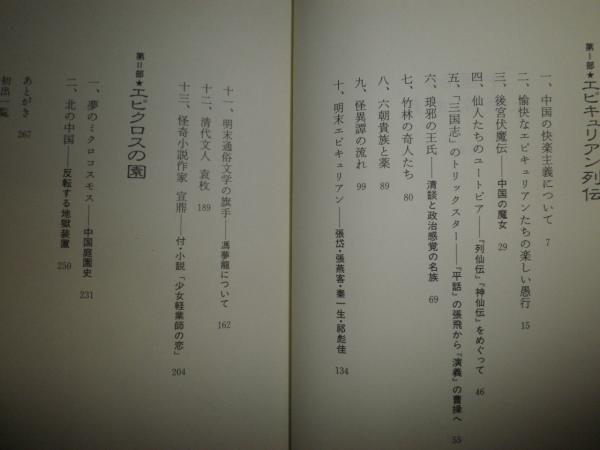 第Ⅰ部★エピキュリアン列伝
一、中国の快楽主義について 7
二、愉快なエピキュリアンたちの楽しい愚行 15
三、後宮伏魔伝――中国の魔女 29
四、仙人たちのユートピア――『列仙伝』『神仙伝』をめぐって 46
五、「三国志」のトリックスター――『平話』の張飛から『演義』の曹操へ 55
六、琅邪の王氏――清談と政治感覚の名族 69
七、竹林の奇人たち 80
八、六朝貴族と薬 89
九、怪異譚の流れ 99
十、明末エピキュリアン――張岱・張燕客・秦一生・祁彪佳 134
十一、明末通俗文学の旗手――馮夢龍について 162
十二、清代文人 袁枚 189
十三、怪奇小説作家 宣鼎――付・小説「少女軽業師の恋」 204
第Ⅱ部★エピクロスの園
一、夢のミクロコスモス――中国庭園史 231
二、北の中国――反転する地獄装置 250
あとがき 267
初出一覧